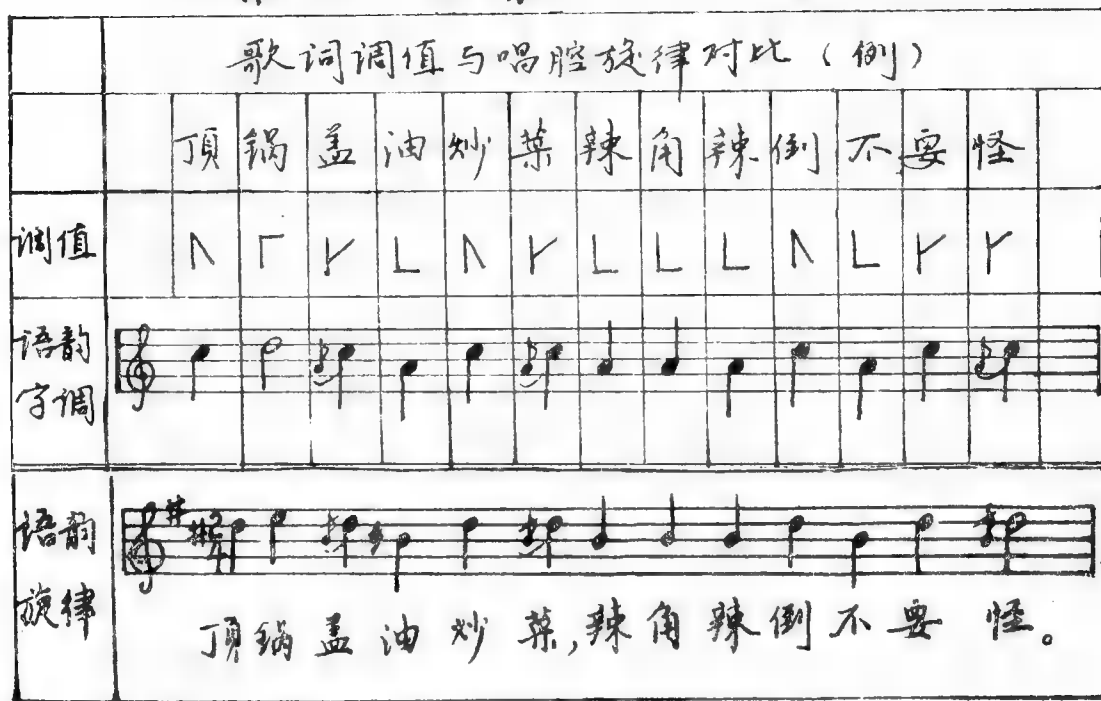 歌词调值与唱腔旋律对比（例）
顶 锅 盖 油 炒 菜 辣 角 辣 倒 不 要 怪
调值
语韵
字调
语韵
旋律
顶锅盖油炒菜,辣角辣倒不要怪。